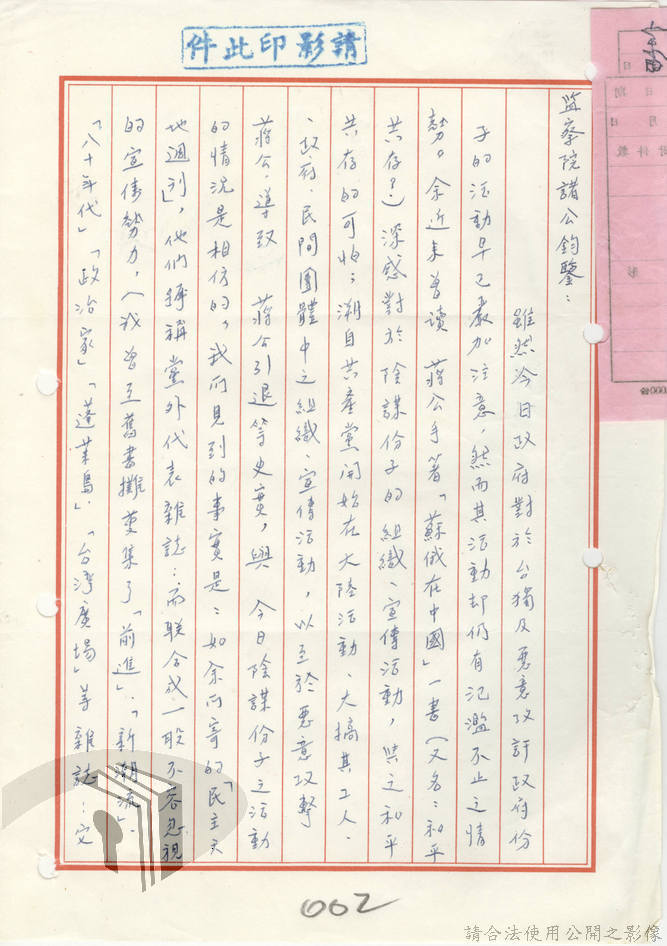 請影印此件
監察院諸公鈞鑒：
雖然今日政府對於台獨及惡意攻訐政府份
子的活動早已嚴加注意，然而其活動却仍有氾濫不止之情
勢。余近來曾讀 蔣公手著「蘇俄在中國」一書（又名：和平
共存？）深感對於陰謀份子的組織、宣傳活動，與之和平
共存的可怕；溯自共產黨開始在大陸活動、大搞其工人、
、政府、民間團體中之組織、宣傳活動，以至於惡意攻擊
蔣公，導致 蔣公引退等史實，與 今日陰謀份子之活動
的情況是相仿的。我所見到的事實是：如余所寄的「民主天
地週刊」，他們號稱黨外代表雜誌：而聯合成一股不容忽視
的宣傳勢力，（我曾至舊書攤蒐集了「前進」、「新潮流」、
「八十年代」「政治家」「蓬萊島」、「台湾廣場」等雜誌：文
日
期
月
日
件數
002
請合法使用公開之影像